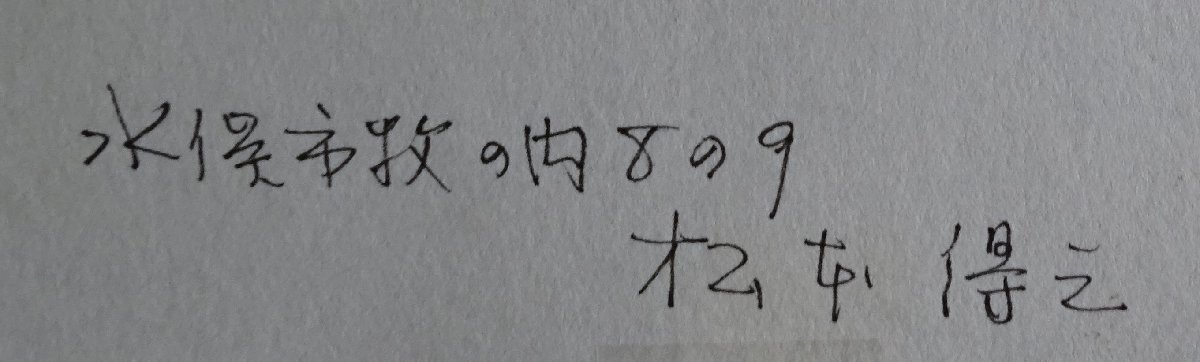 水俣市牧の内8の9
松本 得之